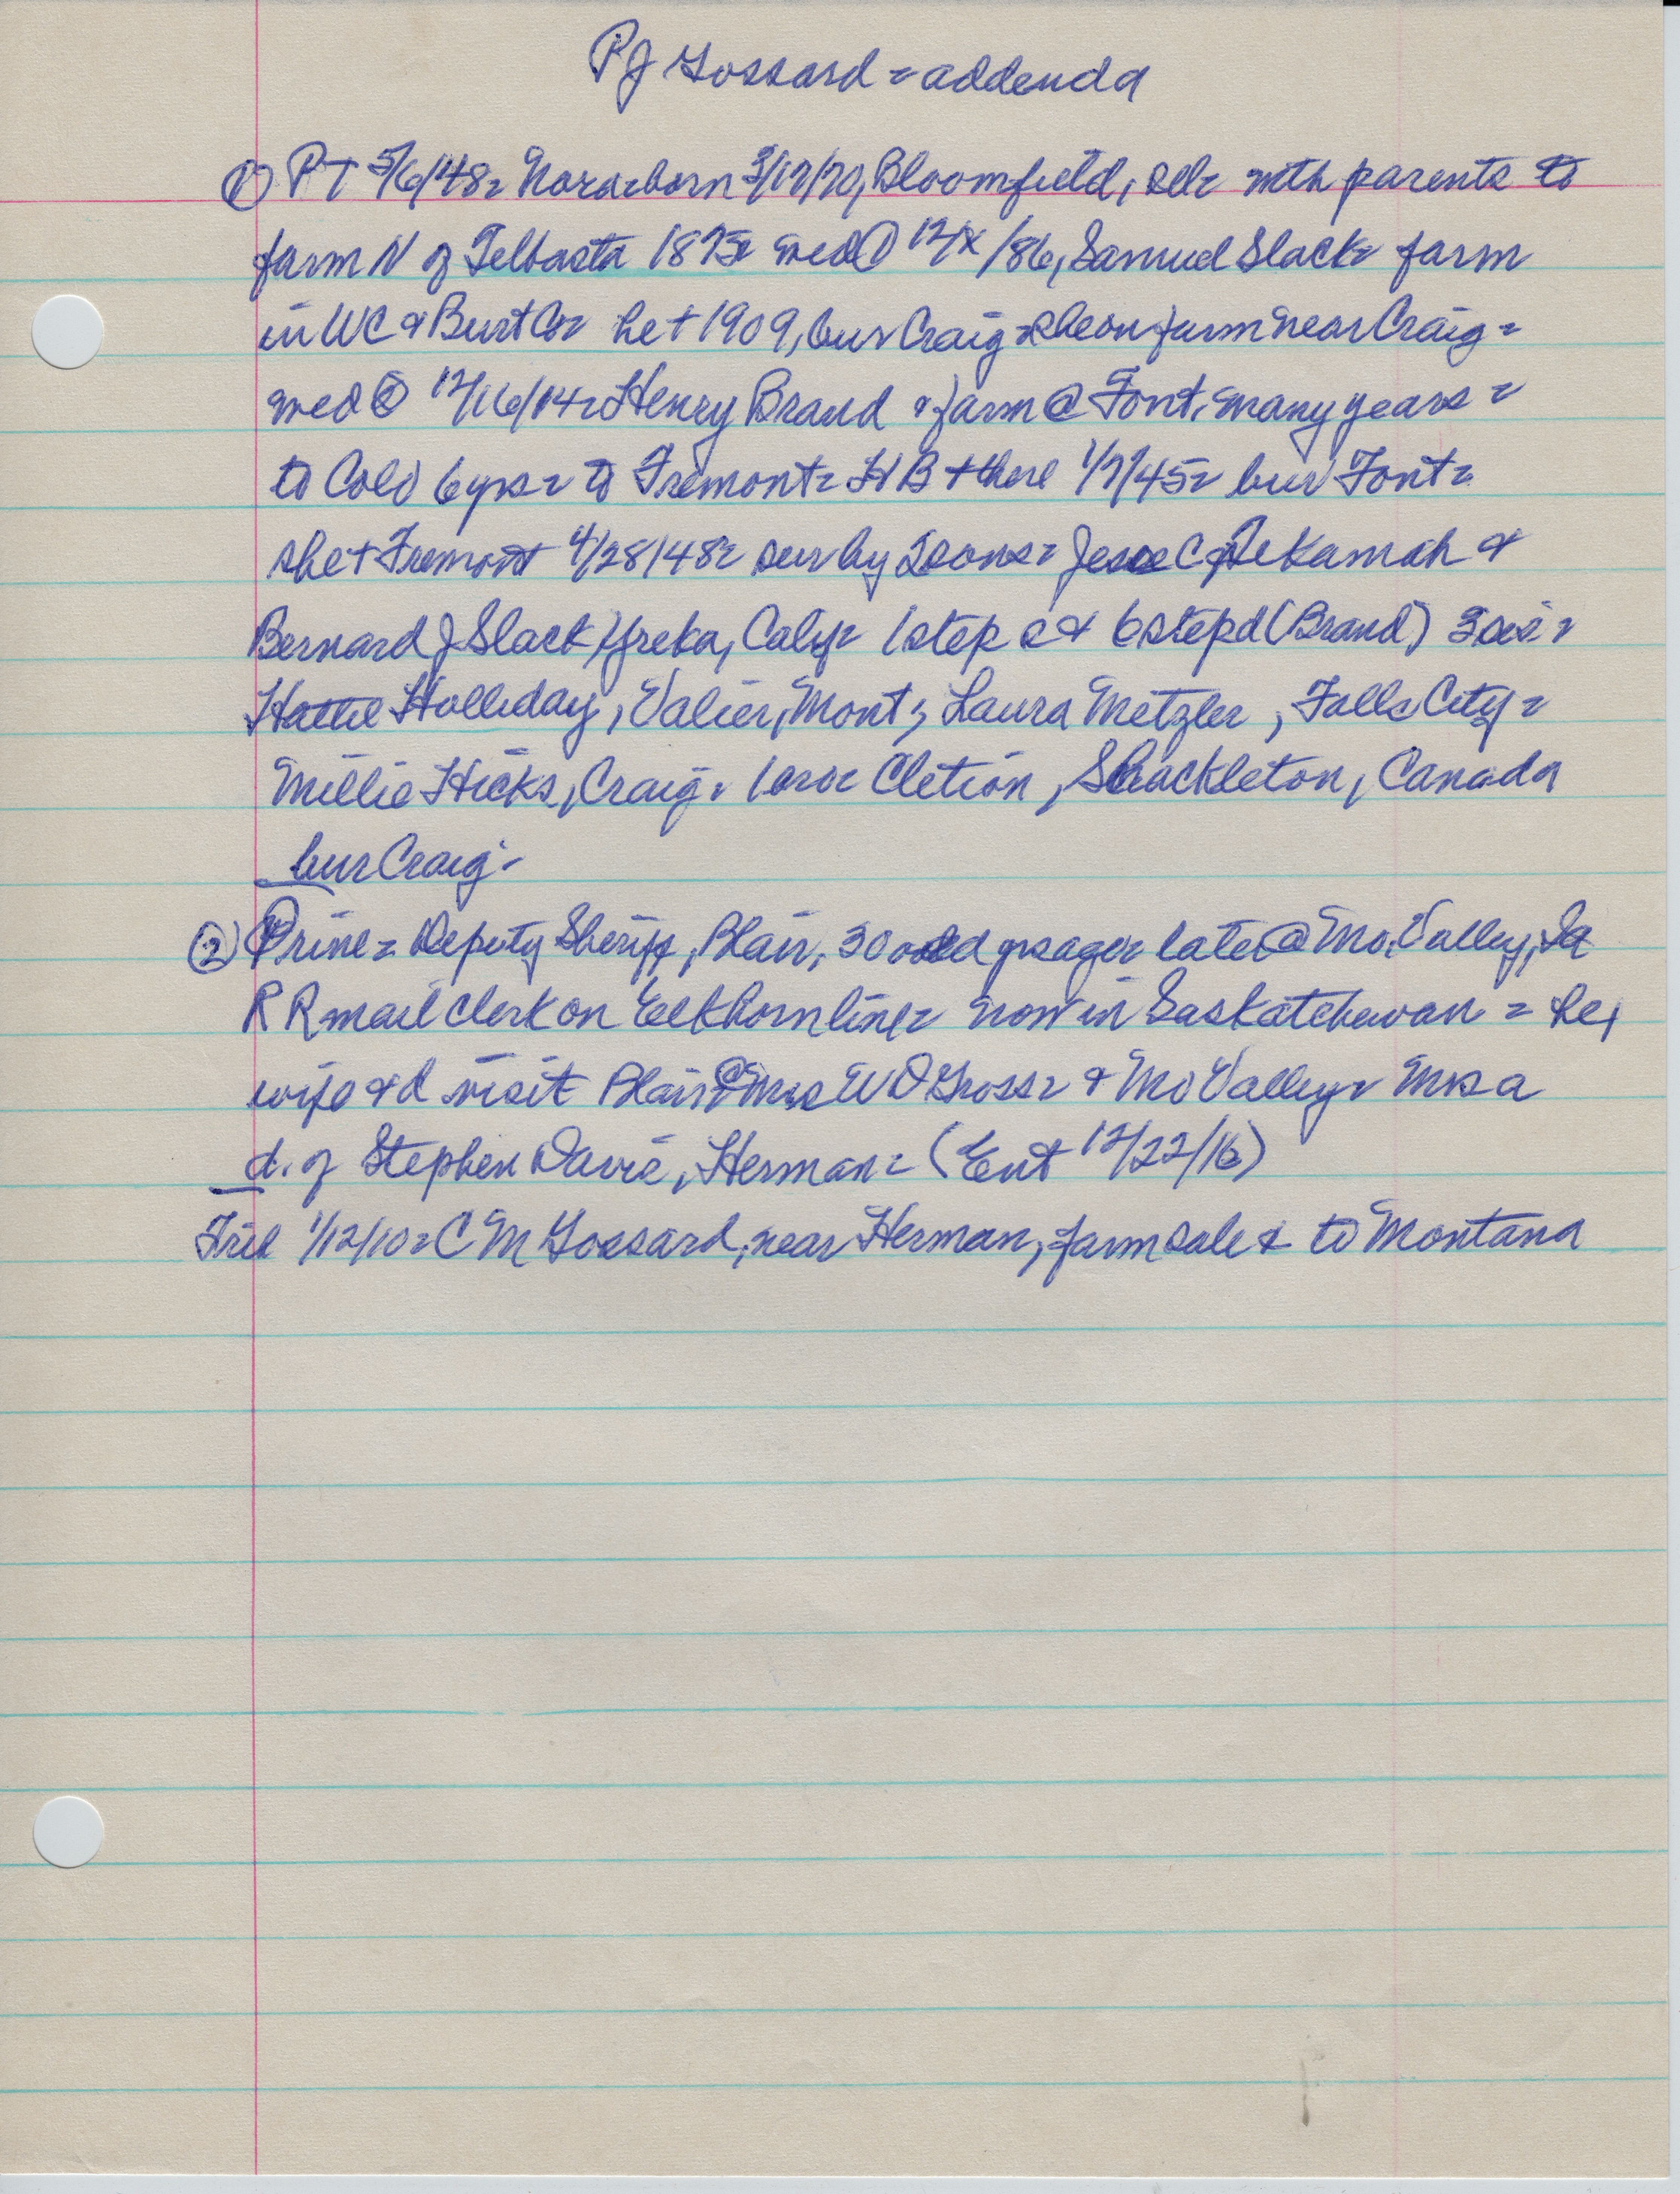 PJ Gossard = addenda
① PT 5/6/48 = Nora = born 3/17/70, Bloomfield, with parents to
farm N of Telbasta 1875 = med ① 12/x/86, Samuel Slack = farm
in WC & Burt Co = he + 1909, bur Craig = she on farm near Craig =
med ② 12/16/14 = Henry Brand & farm @ Font, many years =
to Colo 6 yrs = to Fremont = HB + there 1/7/45 = bur Font =
she + Fremont 4/28/48 = sur by 2 sons = Jesse C, Tekamah &
Bernard J Slack, Yreka, Calif = 1 step s & 6 step d (Brand) 3 sis =
Hattie Holliday, Valier, Mont; Laura Metzler, Falls City =
Millie Hicks, Craig. 1 bro = Cletion, Shackleton, Canada
bur Craig -
② Prine = Deputy Sheriff, Blair, 30 odd yrs ago = later @ Mo. Valley, Ia
RR mail clerk on Elkhorn line = now in Saskatchewan = he,
wife & d visit Blair @ Mrs W D Gross = & Mo Valley = Mrs a
d. of Stephen Davis, Herman = (Ent 12/22/16)
Trib 1/12/10 = C M Gossard, near Herman, farm sale & to Montana